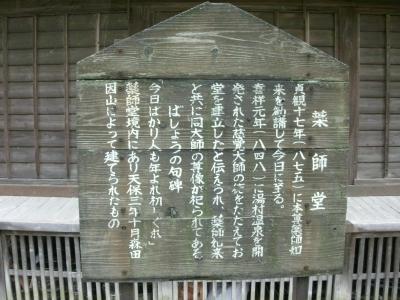 薬師堂
貞観十七年(八七五)に本尊薬師如
来を勧請して今日に至る。
嘉祥元年(八四八)に湯村温泉を開
発された慈覚大師の徳をたたえてお
堂を建立したと伝えられ、薬師如来
と共に同大師の尊像が祀られてある
ばしょうの句碑
「今日ばかり人も年よれ初しぐれ」
薬師堂境内にあり天保三年十月森田
因山によって建てられたもの